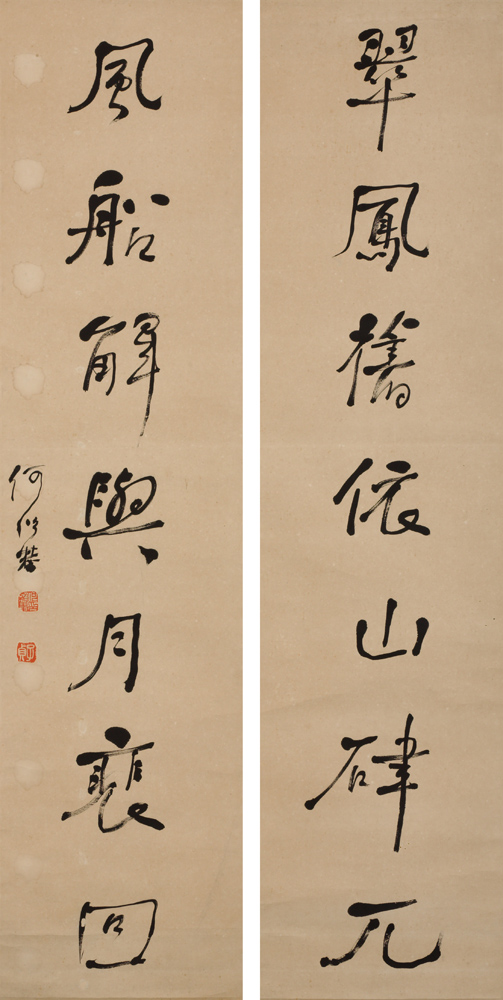 翠鳳舊依山硉兀
風船解與月裵回
何紹基
子貞